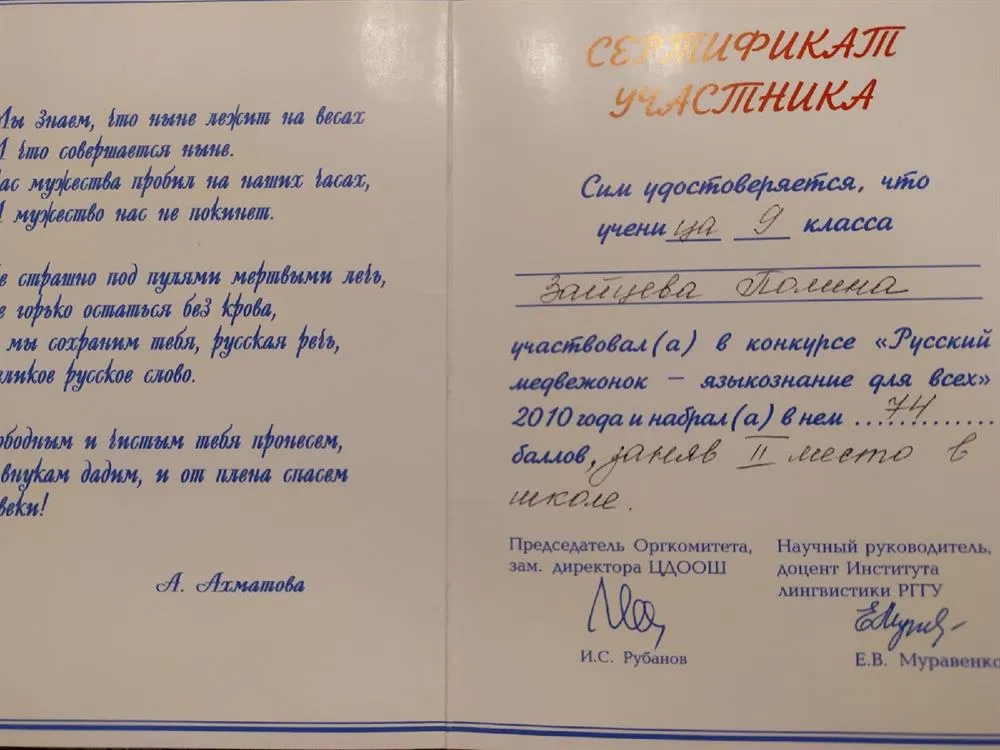 Мы знаем, что ныне лежит на весах
И что совершается ныне.
Час мужества пробил на наших часах,
И мужество нас не покинет.
Не страшно под пулями мертвыми лечь,
Не горько остаться без крова,
мы сохраним тебя, русская речь,
Великое русское слово.
Свободным и чистым тебя пронесем,
внукам дадим, и от плена спасем
Навеки!
А. Ахматова
СЕРТИФИКАТ
УЧАСТНИКА
Сим удостоверяется, что
ученица 9 класса
Зайцева Полина
участвовал(а) в конкурсе «Русский
медвежонок – языкознание для всех»
2010 года и набрал(а) в нем ...74...
баллов, заняв II место в
школе.
Председатель Оргкомитета,
зам. директора ЦДООШ
И.С. Рубанов
Научный руководитель,
доцент Института
лингвистики РГГУ
Е.В. Муравенко